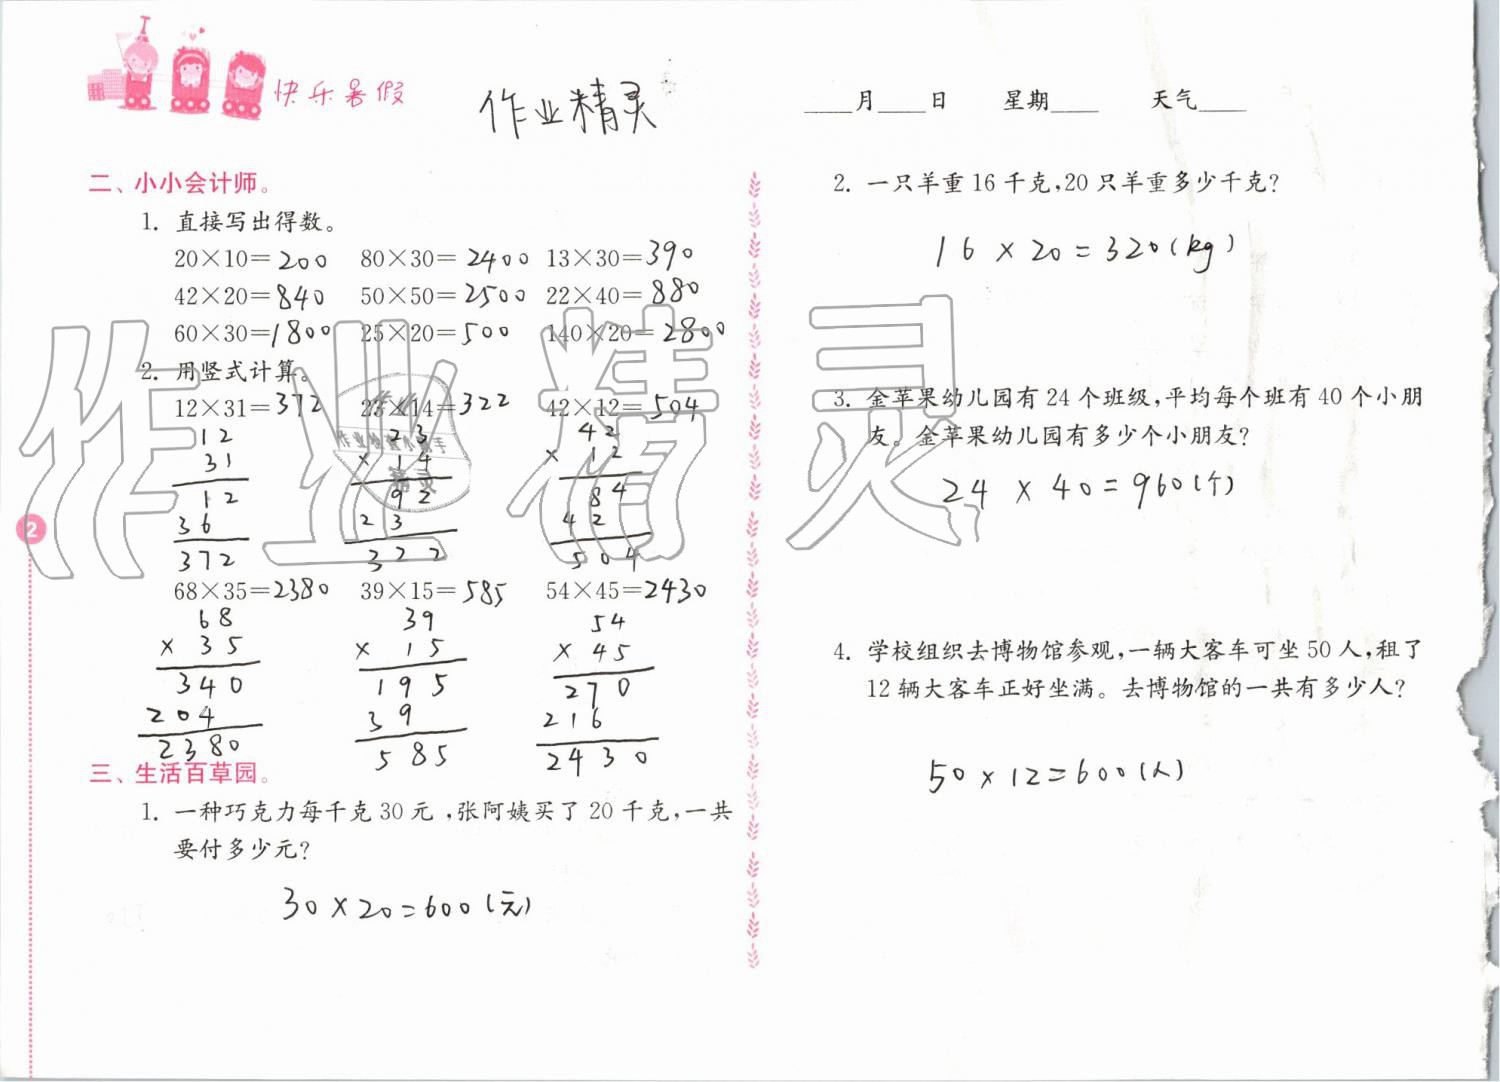 快乐暑假
作业精灵
____月____日 星期____ 天气____
二、小小会计师。
1. 直接写出得数。
20×10=200 80×30=2400 13×30=390
42×20=840 50×50=2500 22×40=880
60×30=1800 25×20=500 140×20=2800
2. 用竖式计算。
12×31=372 23×14=322 42×12=504
12 23 42
31 × 14 × 12
12 92 84
36 23 42
372 322 504
68×35=2380 39×15=585 54×45=2430
68 39 54
× 35 × 15 × 45
340 195 270
204 39 216
2380 585 2430
三、生活百草园。
1. 一种巧克力每千克30元,张阿姨买了20千克,一共
要付多少元?
30×20=600(元)
2. 一只羊重16千克,20只羊重多少千克?
16×20=320(kg)
3. 金苹果幼儿园有24个班级,平均每个班有40个小朋
友。金苹果幼儿园有多少个小朋友?
24×40=960(个)
4. 学校组织去博物馆参观,一辆大客车可坐50人,租了
12辆大客车正好坐满。去博物馆的一共有多少人?
50×12=600(人)
2
作业精灵